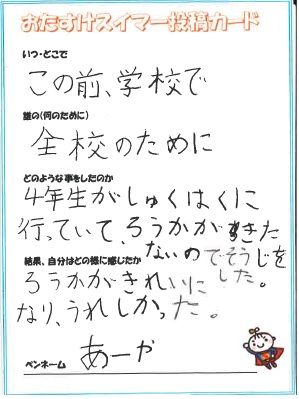 おたすけスイマー投稿カード
いつ・どこで
この前、学校で
誰の(何のために)
全校のために
どのような事をしたのか
4年生がしゅくはくに
行っていて、ろうかがきた
ないのでそうじを
しました。
結果、自分はどの様に感じたか
ろうかがきれいに
なり、うれしかった。
あーや
ペンネーム